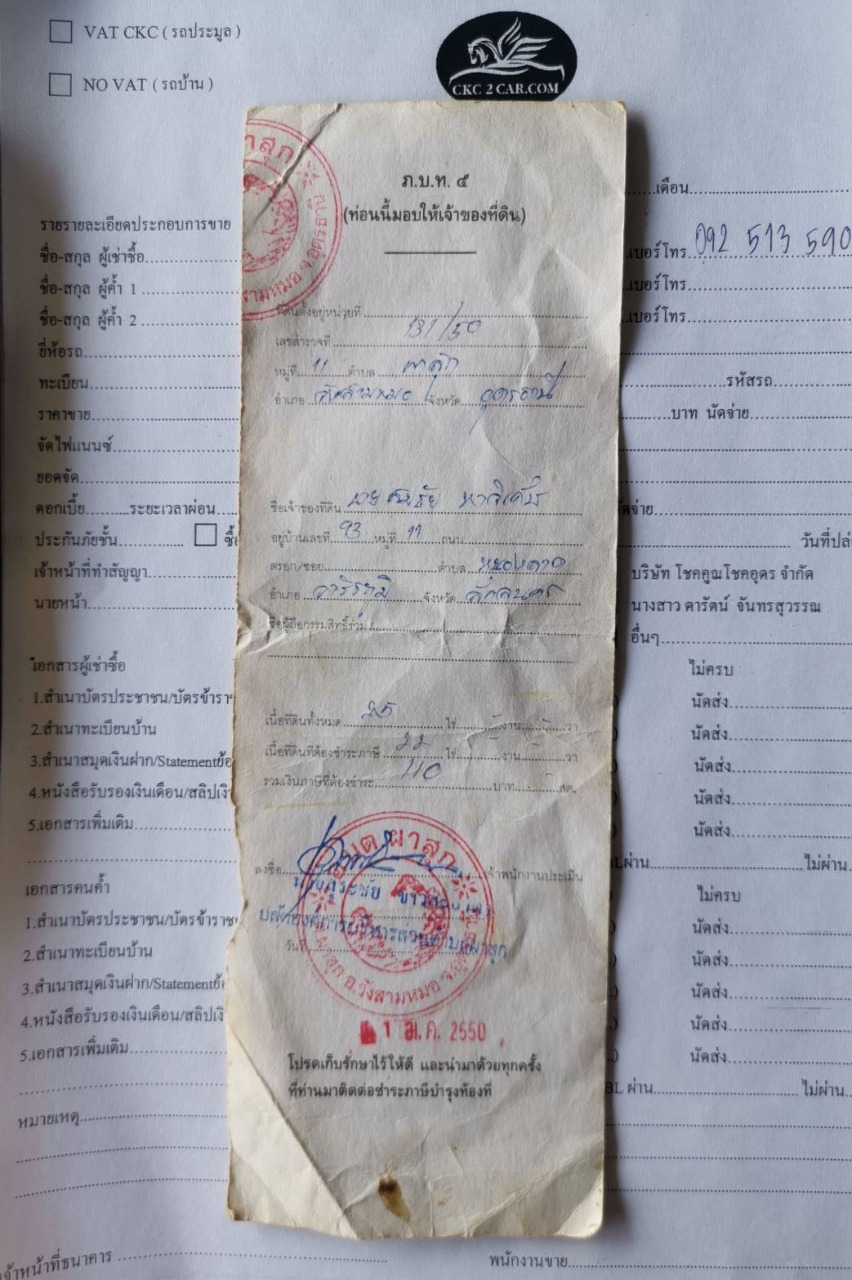 VAT CKC ( รถประมูล )
NO VAT ( รถบ้าน )
CKC 2 CAR.COM
รายรายละเอียดประกอบการขาย
ชื่อ-สกุล ผู้เช่าซื้อ
ชื่อ-สกุล ผู้ค้ำ 1
ชื่อ-สกุล ผู้ค้ำ 2
ยี่ห้อรถ
ทะเบียน
ราคาขาย
จัดไฟแนนซ์
ยอดจัด
ดอกเบี้ย ระยะเวลาผ่อน
ประกันภัยชั้น
เจ้าหน้าที่ทำสัญญา
นายหน้า
เอกสารผู้เช่าซื้อ
1.สำเนาบัตรประชาชน/บัตรข้ารา
2.สำเนาทะเบียนบ้าน
3.สำเนาสมุดเงินฝาก/Statement
4.หนังสือรับรองเงินเดือน/สลิปเงิ
5.เอกสารเพิ่มเติม
เอกสารคนค้ำ
1.สำเนาบัตรประชาชน/บัตรข้าราช
2.สำเนาทะเบียนบ้าน
3.สำเนาสมุดเงินฝาก/Statement
4.หนังสือรับรองเงินเดือน/สลิปเงิ
5.เอกสารเพิ่มเติม
หมายเหตุ
จ้าหน้าที่ธนาคาร
ภ.บ.ท. ๕
(ท่อนนี้มอบให้เจ้าของที่ดิน)
ที่ดินตั้งอยู่หน่วยที่
เลขสำรวจที่ 131/50
หมู่ที่ 11 ตำบล ผาสุก
อำเภอ วังสามหมอ จังหวัด อุดรธานี
ชื่อเจ้าของที่ดิน นาย
อยู่บ้านเลขที่ 93 หมู่ที่ 11 ถนน
ตรอก/ซอย ตำบล
อำเภอ วาริชภูมิ จังหวัด สกลนคร
ชื่อผู้ถือกรรมสิทธิ์ร่วม
เนื้อที่ดินทั้งหมด 25 ไร่ งาน วา
เนื้อที่ดินที่ต้องชำระภาษี 22 ไร่ งาน วา
รวมเงินภาษีที่ต้องชำระ 110 บาท สต.
ลงชื่อ เจ้าพนักงานประเมิน
ปลัดองค์การบริหารส่วนตำบลผาสุก
วันที่
อบต.ผาสุก
อ.วังสามหมอ จ.อุดรธานี
ม.ค. 2550
โปรดเก็บรักษาไว้ให้ดี และนำมาด้วยทุกครั้ง
ที่ท่านมาติดต่อชำระภาษีบำรุงท้องที่
เดือน
เบอร์โทร 092 513 590
เบอร์โทร
เบอร์โทร
รหัสรถ
บาท นัดจ่าย
จ่าย
วันที่ปล่
บริษัท โชคคูณโชคอุดร จำกัด
นางสาว ดารัตน์ จันทรสุวรรณ
อื่นๆ
ไม่ครบ
นัดส่ง
นัดส่ง
นัดส่ง
นัดส่ง
นัดส่ง
ผ่าน ไม่ผ่าน
ไม่ครบ
นัดส่ง
นัดส่ง
นัดส่ง
นัดส่ง
นัดส่ง
BL ผ่าน ไม่ผ่าน
พนักงานขาย